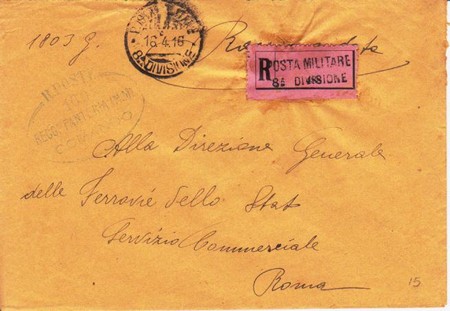 1803 G.
POSTA MILITARE
16.4.16
8ª DIVISIONE
Raccomandata
R POSTA MILITARE
8ª DIVISIONE
REGGIMENTO
Alla Direzione Generale
delle Ferrovie dello Stato
Servizio Commerciale
Roma
15